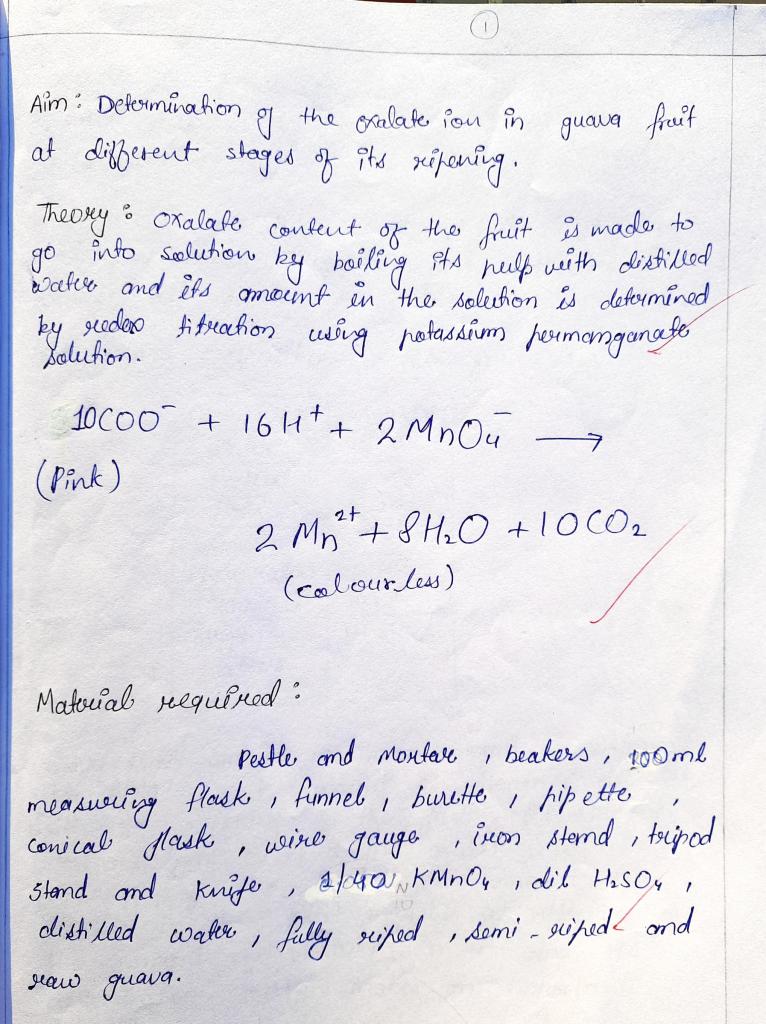 1
Aim: Determination of the oxalate ion in guava fruit
at different stages of its ripening.
Theory: Oxalate content of the fruit is made to
go into solution by boiling its pulp with distilled
water and its amount in the solution is determined
by redox titration using potassium permanganate
solution.
10COO⁻ + 16H⁺ + 2MnO₄⁻ →
(Pink)
2Mn²⁺ + 8H₂O + 10CO₂
(colourless)
Material required:
Pestle and Mortar, beakers, 100ml
measuring flask, funnel, burette, pipette,
conical flask, wire gauge, iron stand, tripod
stand and knife, N KMnO₄, dil H₂SO₄,
distilled water, fully riped, semi-riped and
raw guava.